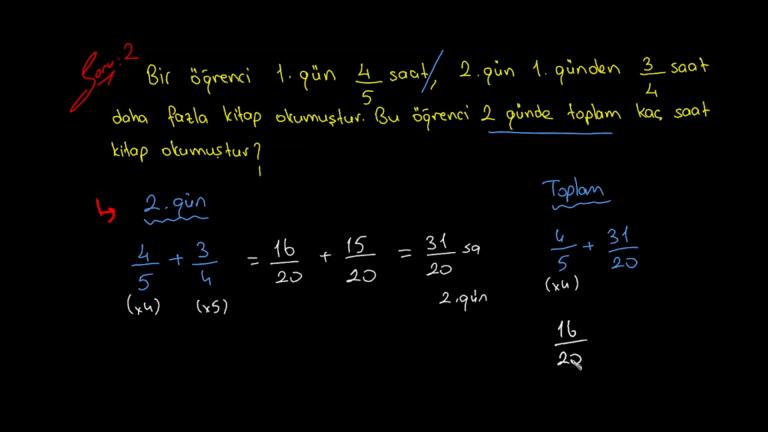 Soru: 2
Bir öğrenci 1. gün 4/5 saat, 2. gün 1. günden 3/4 saat
daha fazla kitap okumuştur. Bu öğrenci 2 günde toplam kaç saat
kitap okumuştur?
2. gün
4/5 + 3/4 = 16/20 + 15/20 = 31/20 sa
(x4) (x5)
2. gün
Toplam
4/5 + 31/20
(x4)
16/20